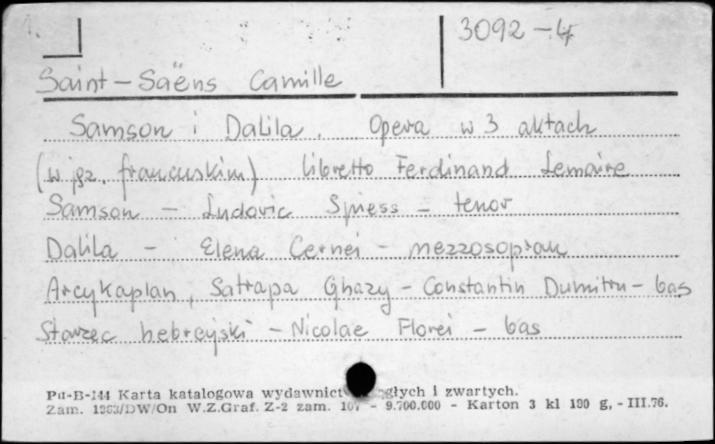 1.
3092-4
Saint-Saëns Camille
Samson i Dalila. Opera w 3 aktach
(w jęz. francuskim) libretto Ferdinand Lemaire
Samson - Ludovic Spiess - tenor
Dalila - Elena Cernei - mezzosopran
Arcykapłan, Satrapa Ghazy - Constantin Dumitru - bas
Starzec hebrajski - Nicolae Florei - bas
Pu-B-144 Karta katalogowa głych i zwartych.
Zam. W.Z.Graf. Z-2 zam. - 9.700.000 - Karton 3 kl 180 g, - III.76.